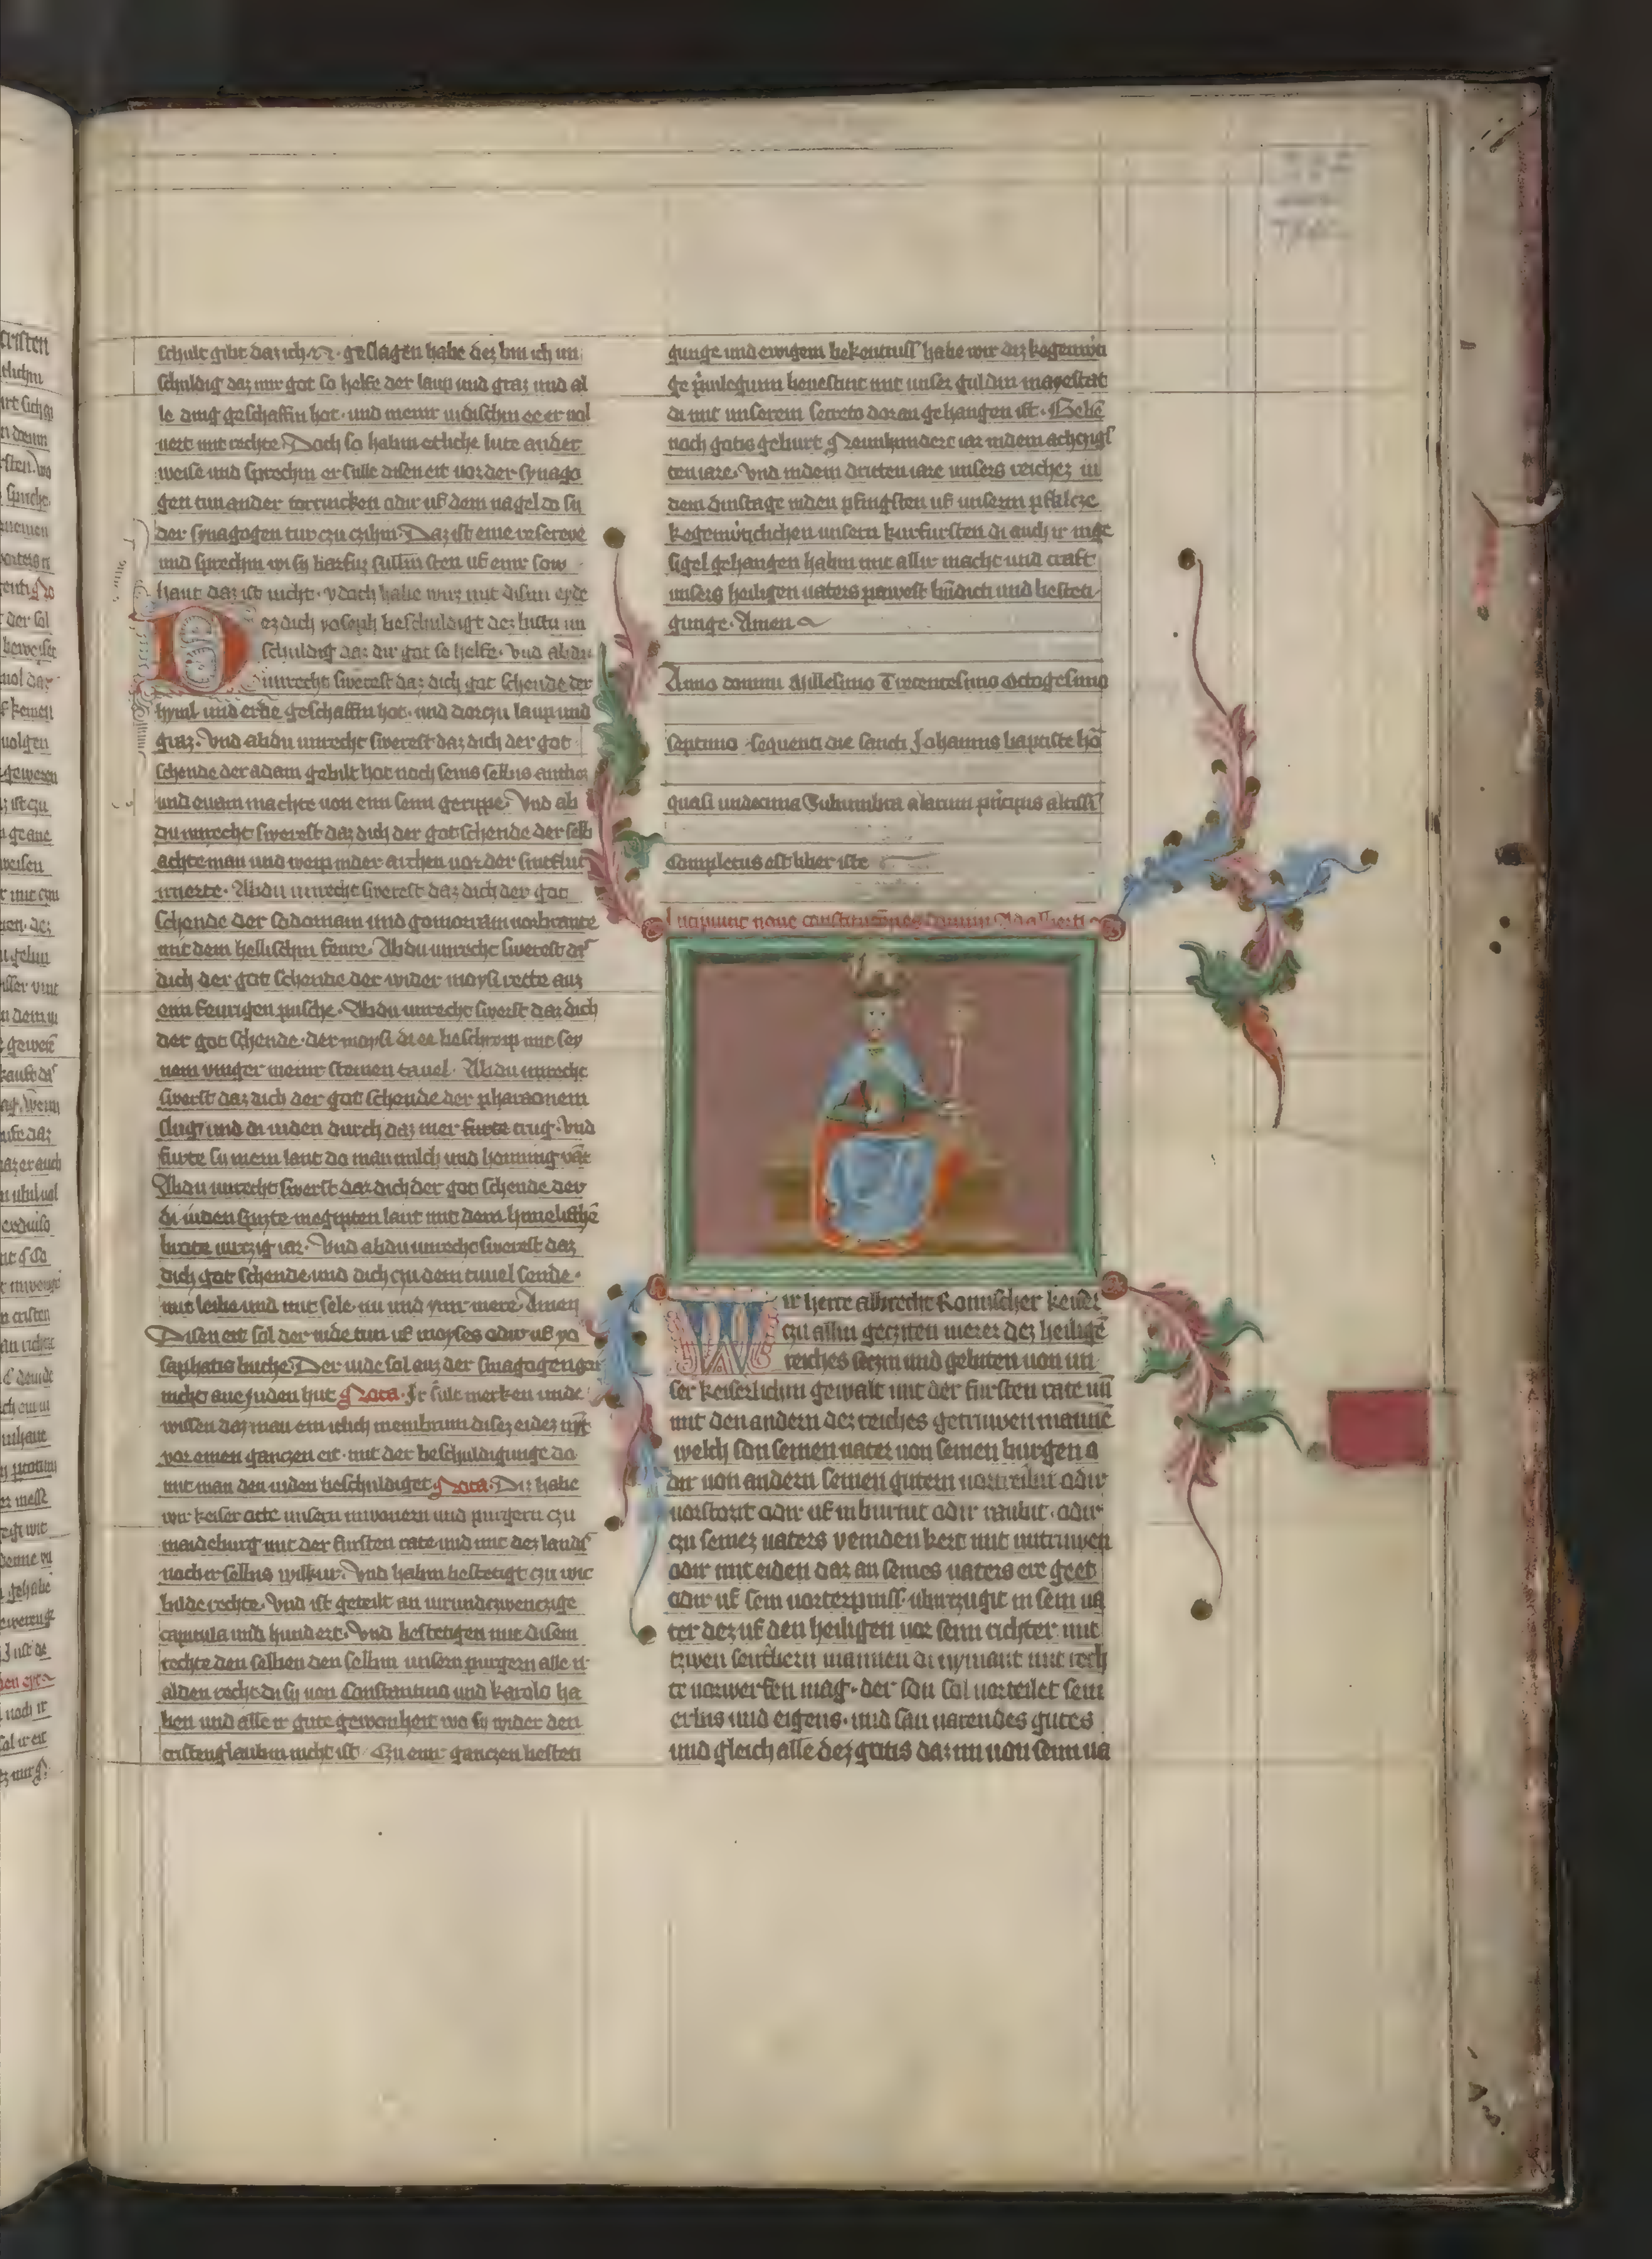 schult gibt daz ich N. geslagen habe dez bin ich un
schuldig daz mir got so helfe der laup und graz und al
le ding geschaffin hot. und meinir iudischin ee er vol
uert mit rechte. Doch so habin etliche lute ander
weise und sprechin er sulle disen eit vor der synago
gen tun ander odir uf dem nagel do su
der synagogen tur czu czihin. Daz ist eine
und sprechin wi sy barfuz sullin sten uf einr sow
haut daz ist nicht. ydoch habe wirz mit disim eyde
Dez dich yoseph beschuldigt dez bistu un
schuldig daz dir got so helfe. Und ab du
unrecht swerest daz dich got schende der
hyml und erde geschaffin hot. und dorczu laup und
graz. Und ab du unrecht swerest daz dich der got
schende der adam gebilt hot noch seins selbns
und euam machte von eim seinr gerippe. Und ab
du unrecht swerest daz dich der got schende der selb
achte man und weip inder archen vor der sintflut
nuerte. Ab du unrecht swerest daz dich der got
schende der sodomam und gomorram vorbrante
mit dem hellischin feure. Ab du unrecht swerest daz
dich der got schende der wider moysi rette auz
eim feurigen pusche. Ab du unrecht swerst daz dich
der got schende. der moysi di ee beschreip mit sey
nem vinger in einr steinen tauel. Ab du unrecht
swerst daz dich der got schende der pharaonem
slug und di iuden durch daz mer furte trug. Und
furte sy in ein lant do man milch und honnung
Ab du unrecht swerst daz dich der got schende der
di iuden spizte in egipten lant mit dem himelische
brote uirczig iar. Und ab du unrecht swerest daz
dich got schende und dich czu dem tiuuel sende.
mit leibe und mit sele. nu und ymmer mere Amen
Disen eit sol der iude tun uf moyses odir uf yo
saphatis buche. Der iude sol auz der sinagogen gen
nicht ane Juden hut Nota. Ir sult merken unde
wissen daz man ein iclich membrum disez eidez
vor einen ganczen eit. mit der beschuldigunge do
mit man den iuden beschuldiget. Nota. Diz habe
wir keiser otte unsern inwonern und purgern czu
maideburg mit der fursten rate und mit dez lands
noch ir selbns wilkur. Und habin bestetigt czu wic
bilde rechte. Und ist geteilt an uirundczwenczige
capitula und hundert. Und bestetigen mit disem
rechte den selben den selbin unsern purgern alle ir
alden recht di sy von Constantino und karolo ha
ben und alle ir gute gewonheit wo sy wider den
cristenglaubin nicht ist. Czu einr ganczen besten
gunge und ewigem bekentniss habe wir diz kegenwu
ge priuilegium beuestint mit unser guldin mayestat
di mit unserem secreto doran gehangen ist. Gebe
noch gotis geburt Neunhundert iar in dem achczigs
ten iare. Und in dem dritten iare unsers reichez in
dem dinstage in den pfingsten uf unsern pfalcze
kegenwirtichen unsern kurfursten di auch ir inge
sigel gehangen habin mit allir macht und craft
unsers heiligen uaters pawest und besteti
gunge. Amen
Anno domini Millesimo Trecentesimo Octogesimo
septimo sequenti die sancti Johannis baptiste
quasi undecima Subumbra alarum principis
Completus est liber iste
Incipiunt noue constituciones domini Adalberti
Wir herre albrecht Romischer keiser
czu allin gecziten merer dez heilige
reiches seczin und gebiten von un
ser keiserlichin gewalt mit der fursten rate un
mit den andern dez reiches getruwen manne
welch son seinen uater von seinen burgen o
dir von andern seinen gutern vortreibit odir
vorstozit odir uf in burnit odir raubit. odir
czu seinez uaters veinden kert mit untruwen
odir mit eiden daz an seines uaters ere geet
odir uf sein vorterpniss. ubirczugit in sein ua
ter dez uf den heiligen vor seim richter mit
czwen sentbern mannen di nymant mit rech
te vorwerfen mag. der son sol vorteilet sein
erbns und eigens. und sau uarendes gutes
und gleich alle dez gutis daz im von seim ua